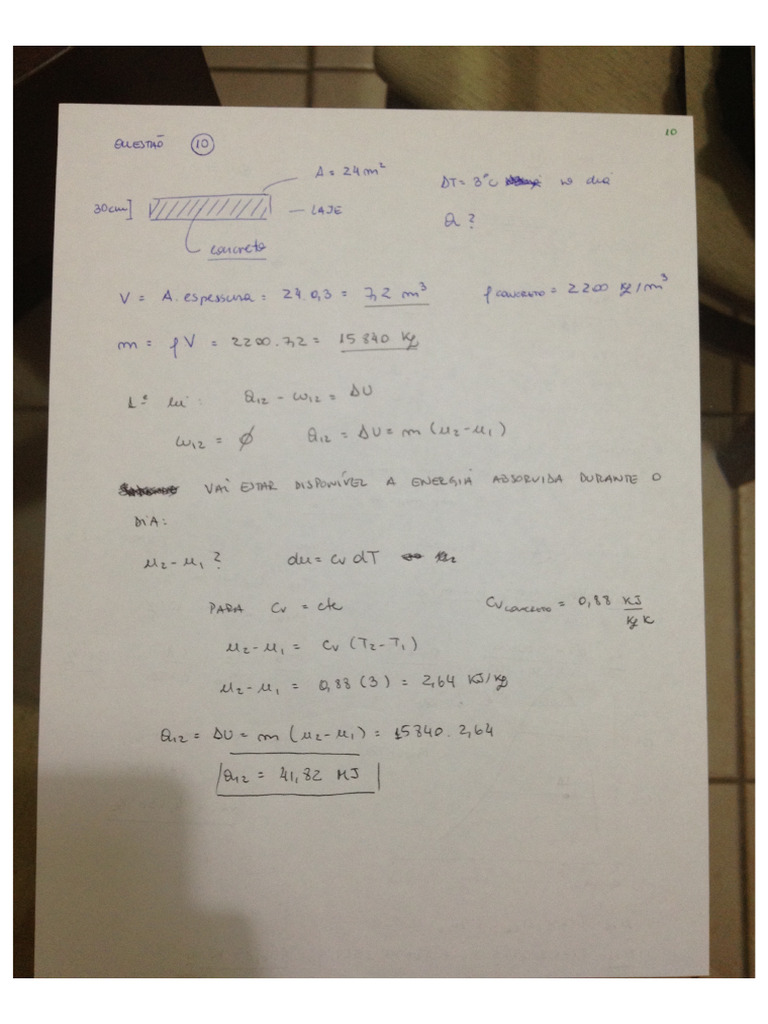 10
QUESTÃO 10
A = 24 m²
30cm] — LAJE
concreto
ΔT = 3°C no dia
Q ?
V = A. espessura = 24.0,3 = 7,2 m³ ρ concreto = 2200 kg/m³
m = ρV = 2200.7,2 = 15 840 kg
1ª lei: Q12 - W12 = ΔU
W12 = ϕ Q12 = ΔU = m (u2 - u1)
VAI ESTAR DISPONÍVEL A ENERGIA ABSORVIDA DURANTE O
DIA:
u2 - u1 ? du = cv dT
PARA Cv = cte Cv concreto = 0,88 KJ/kg K
u2 - u1 = Cv (T2 - T1)
u2 - u1 = 0,88 (3) = 2,64 KJ/kg
Q12 = ΔU = m (u2 - u1) = 15840. 2,64
Q12 = 41,82 MJ